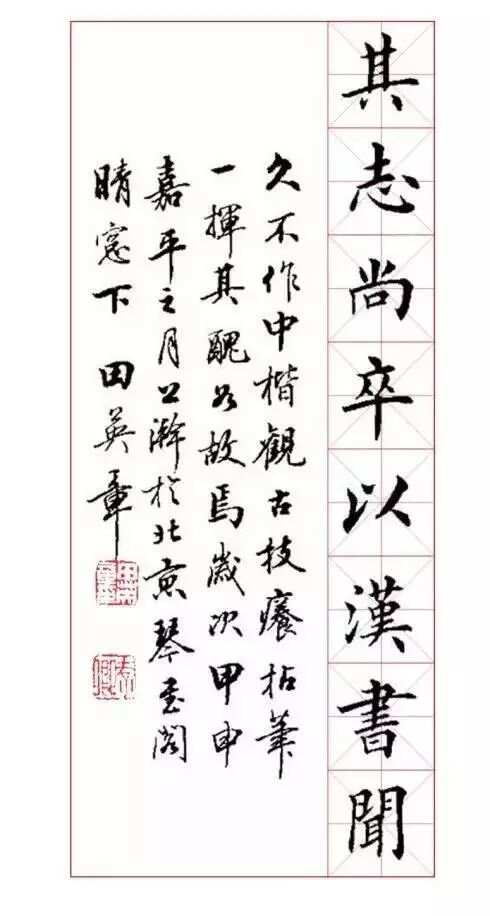 其志尚卒以漢書聞
久不作中楷觀古技癢拈筆
一揮其醜如故焉歲次甲申
嘉平之月上澣於北京琴玉閣
晴窓下 田英章